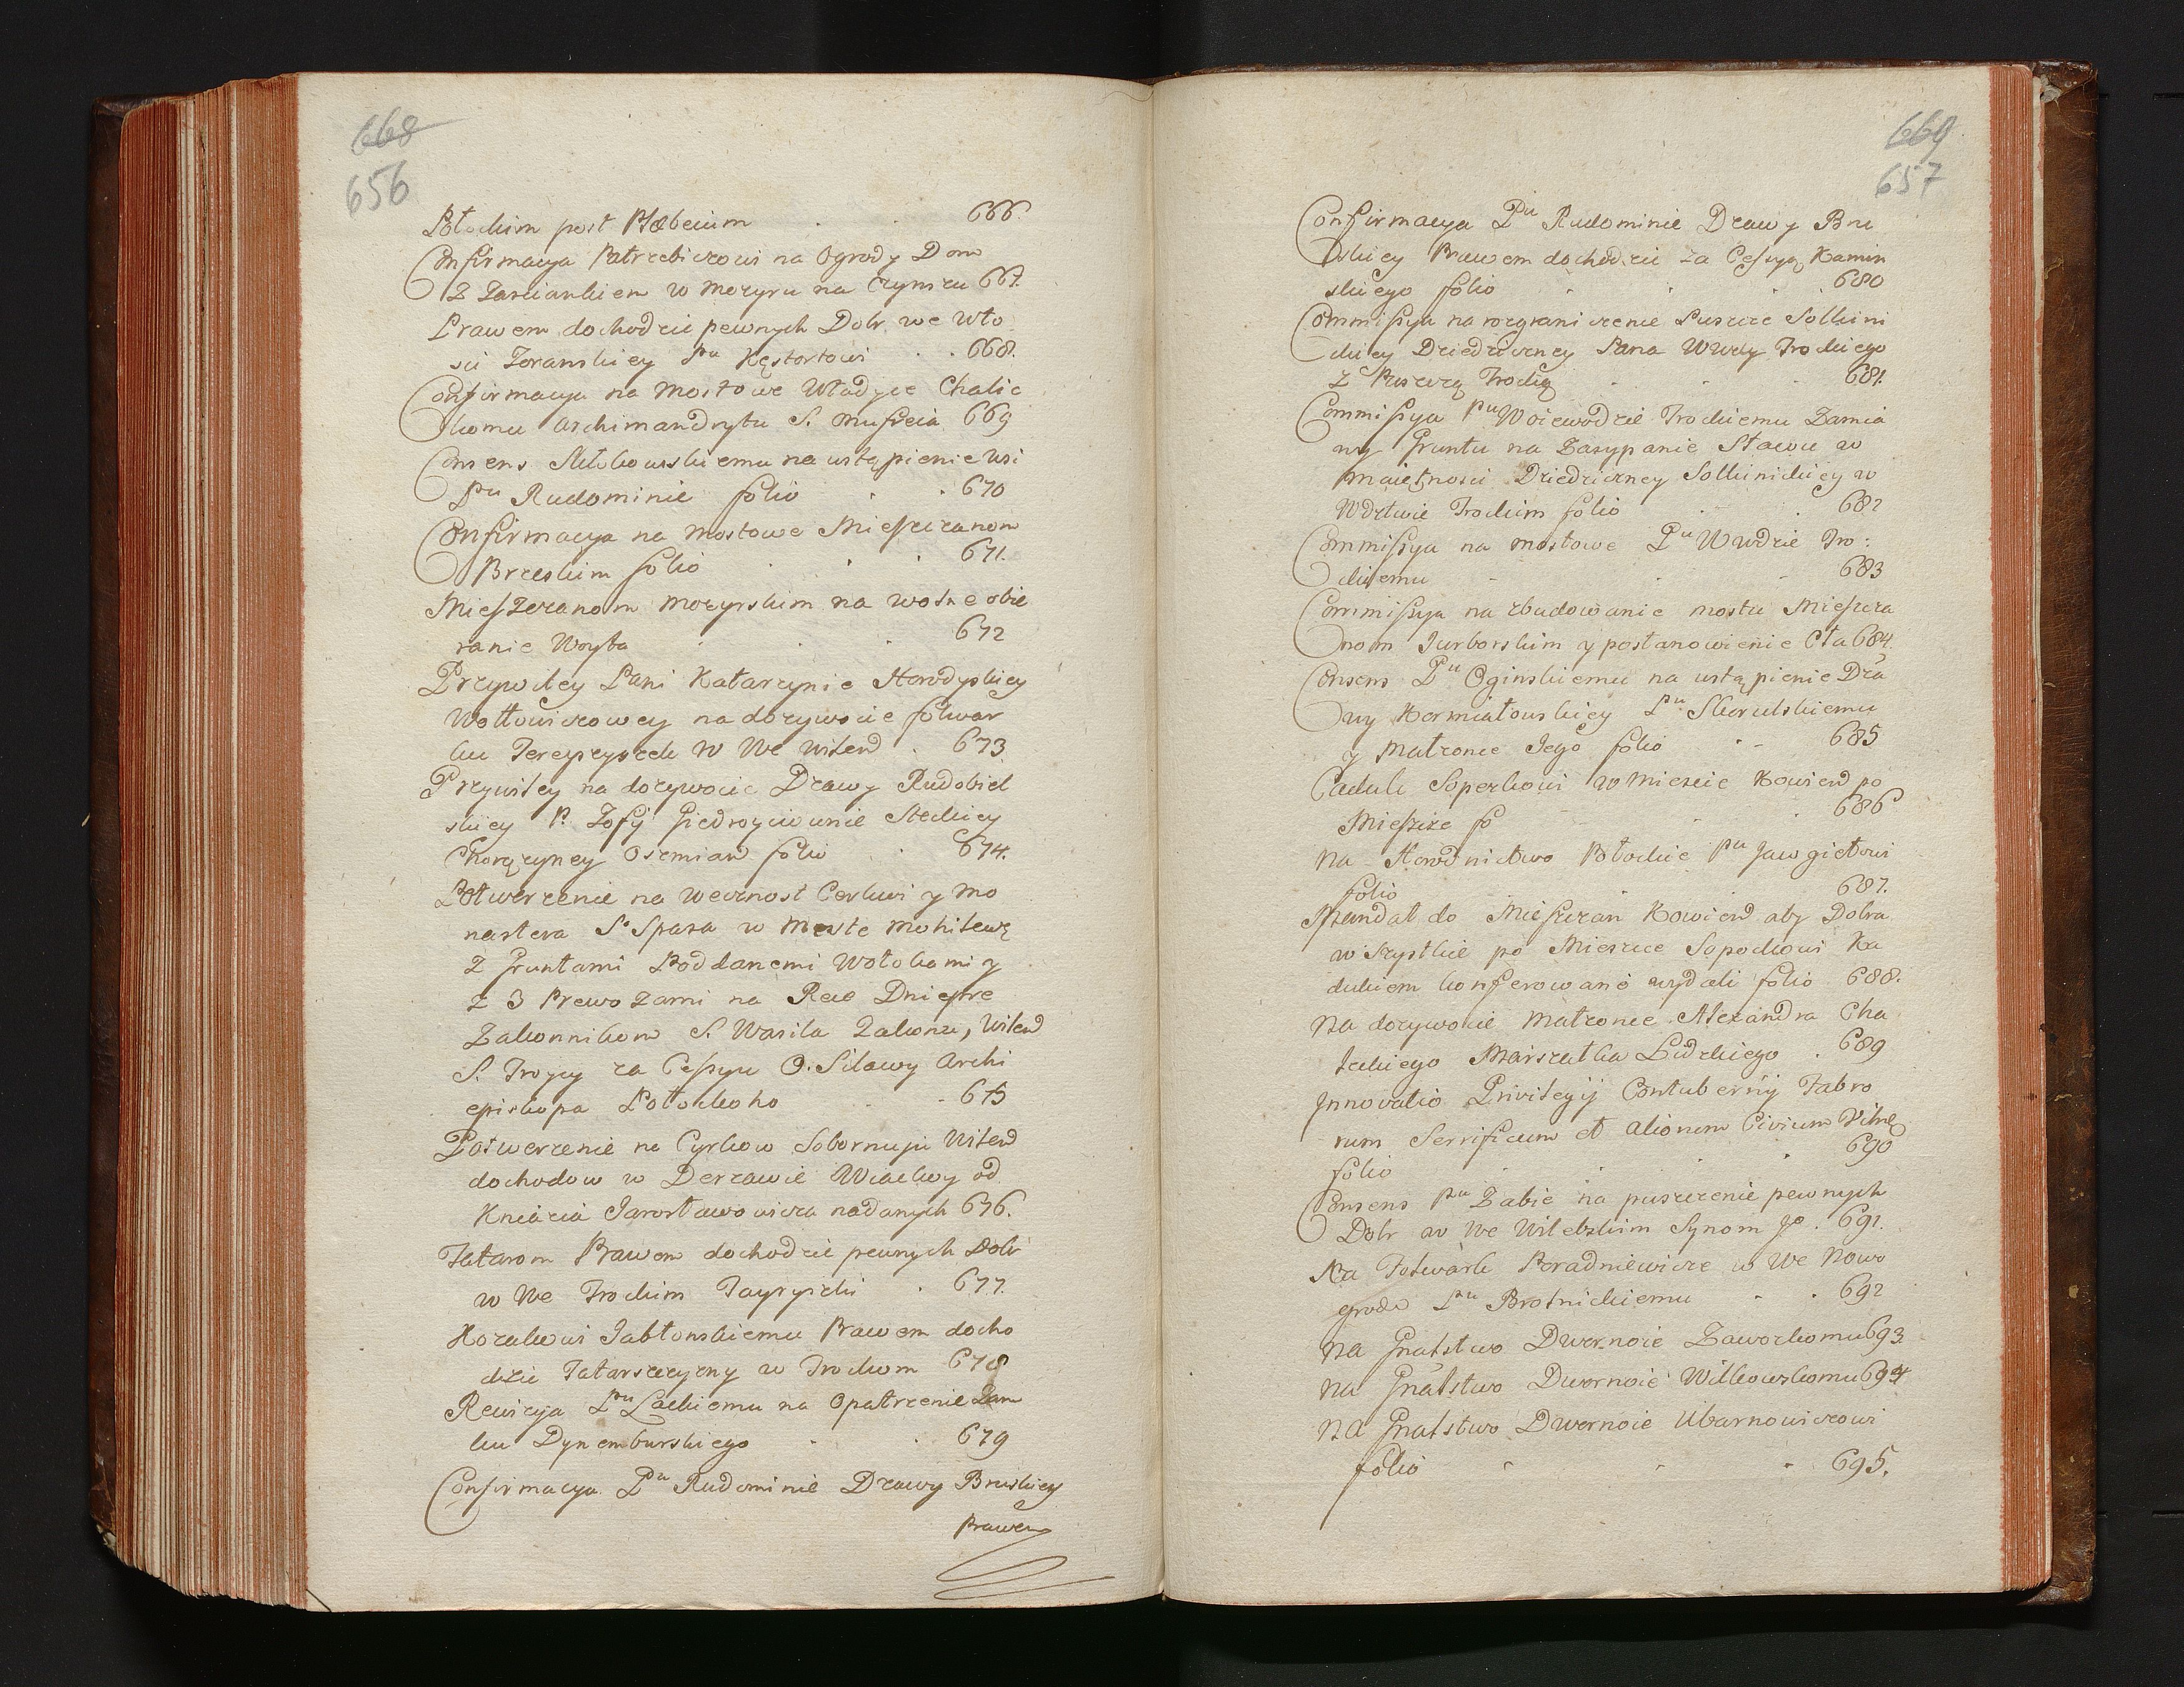 668
656
Płockim post Plebeium . . 666.
Confirmacya Patrzebiczowi na Ogrody Dom
z Zasciankiem w Mozyru na Czynszu 667.
Prawem dochodzic pewnych Dobr we Wło
sci Zoranskiey Pu Kęstortowi . . 668.
Confirmacya na Mostowe Władyce Chelic
komu Archimandrytu S. Onufreia 669
Consens Młokowskiemu na ustąpienie wsi
Pu Rudominie folio . . 670
Confirmacya na Mostowe Mieszczanom
Brzeskim folio . . . 671.
Mieszczanom Mozyrskim na wolne obie
ranie Woyta . . . 672
Przywiley Pani Katarzynie Horodyskiey
Wołłowiczowey na dozywocie folwar
ku w We Witeb . 673
Przywiley na dozywocie Dzawy Rudobiel
skiey P. Zofij Giedroyciownie Steckiey
Chorązyney Oszmian folio . 674.
Potwerzenie na wecznost Cerkwi y Mo
nastera S. Spasa w Meste Mohilewę
z Gruntami Poddanemi Wołokami y
z 3 Prewozami na Rece Dniepre
Zakonnikom S. Wasila Zakonu, Wilend
S. Troycy za Cessyu O. Silawy Archi
episkopa Połockoho . - 675
Potwerzenie na Cyrkow Sobornuju Witeb
dochodow w Derzawie Wiackoy od
Kniazia Jarosławowicza nadanych 676.
Tatarom Prawem dochodzic pewnych Dobr
w We Trockim . 677.
Kozakowi Jabłonskiemu Prawem docho
dzic Tatarszczyzny w Trockom 678
Rewizya Pu Lackiemu na Opatrzenie Zam
ku Dynemburskiego . . 679
Confirmacya Pu Rudominie Dzawy Bruskiey
Prawem
669
657
Confirmacya Pu Rudominie Dzawy Bru
skiey Prawem dochodzic za Cessyą Kamin
skiego folio . . . . 680
Commissya na rozgraniczenie Puszcze Solkini
ckiey Dziedziczney Pana Wwdy Trockiego
z Puszczą Trocką . . . 681.
Commissya Pu Woiewodzie Trockiemu Zamia
ny Gruntu na Zasypanie Stawu w
Maiętnosci Dziedziczney Solkinickiey w
Wdztwie Trockim folio . . 682
Commissya na mostowe Pu Wwdzie Tro:
ckiemu - . - 683
Commissya na zbudowanie mostu Mieszcza
nom Jurborskim y postanowienie Cła 684.
Consens Pu Oginskiemu na ustąpienie Dza
wy Kormiałowskiey Pu Skorulskiemu
y Małzonce Jego folio . - 685
Caduk Soperkowi w Miescie Kowień po
Mieszcze fo - . . 686
Na Horodnictwo Połockie Pu Jawgiełowi
folio . . 687.
Mandat do Mieszczan Kowień aby Dobra
wszystkie po Mieszcze Sopockowi Ka
dukiem konferowane wydali folio 688.
Na dozywocie Małzonce Alexandra Cha
leckiego Marszałka Lidzkiego . 689
Innovatio Privilegij Contubernij Fabro
rum Serrificum et aliorum Civium Vilnę
folio . . . . 690
Consens Pu Zabie na puszczenie pewnych
Dobr w We Witebskim Synom Jo . 691.
Na Folwark Poradniewicze w We Nowo
grodz Pu Brolnickiemu . . 692
Na Gnatstwo Dwornoie Zaworkomu 693
Na Gnatstwo Dwornoie Wilkowskomu 694
Na Gnatstwo Dwornoie Ubarnowiczowi
folio . . . 695.